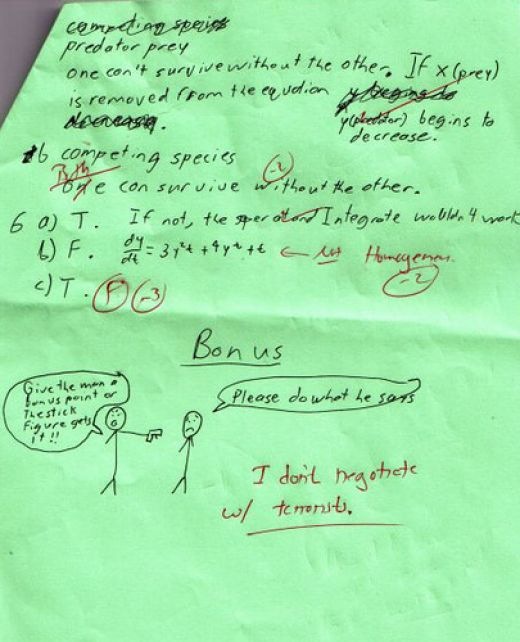 competing species
predator prey
one can't survive without the other. If x (prey)
is removed from the equation y begins to
decreasing. y(predator) begins to
decrease.
b competing species
-2
Both
One can survive without the other.
6 a) T. If not, the Integrate wouldn't work
b) F. dy/dt = 3y²t + 4yt + t ← not Homogenous.
-2
c) T. F -3
Bonus
Give the man a
bonus point or
The stick
Figure gets
it!!
Please do what he says
I don't negotiate
w/ terrorists.